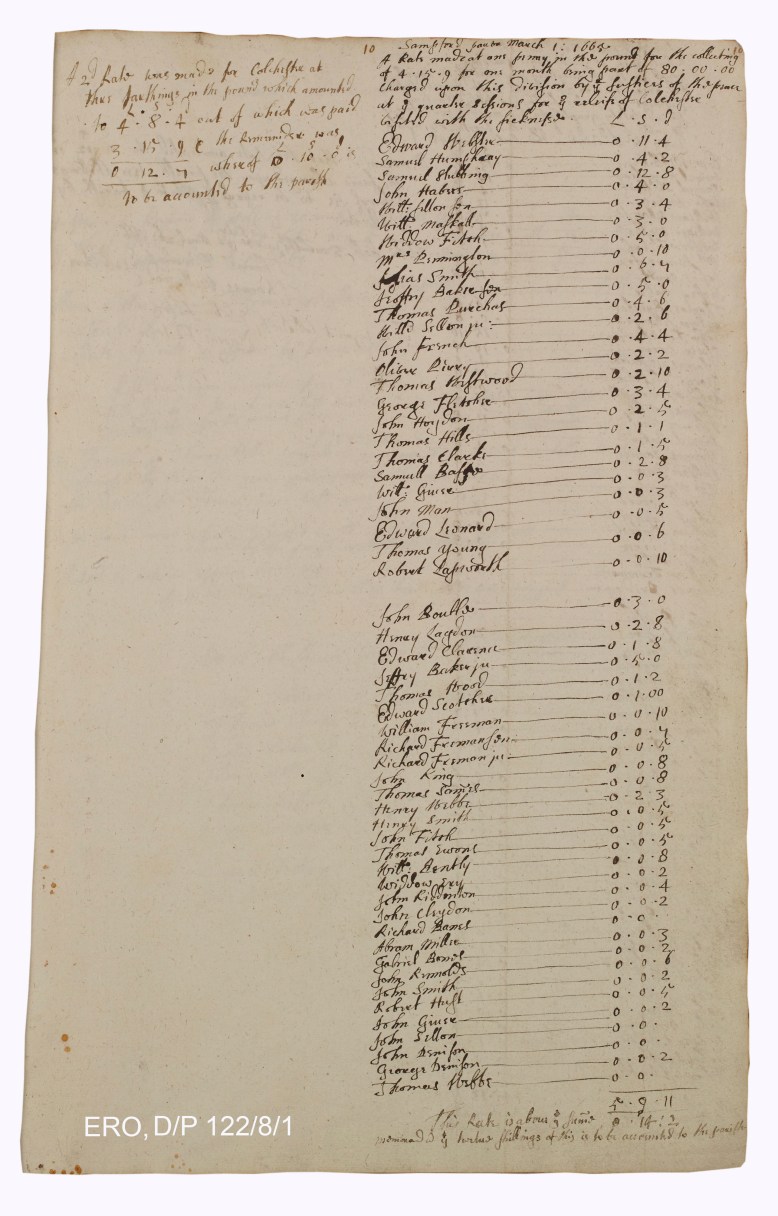 10
A 2d Rate was made for Colchester at
three farthings in the pound which amounted
to 4 · 8 · 4 out of which was paid
3 · 15 · 9 the Remainder was
0 12 · 7 whereof 0 · 10 · 0 is
to be accounted to the parish
Sampford March 1: 1665
A Rate made at one penny in the pound for the collecting
of 4 · 15 · 9 for one month being part of 80 · 00 · 00
Charged upon this Division by ye Justices of the peace
at ye quarter Sessions for ye releife of Colchester
with the sicknesse L · S · d
Edward 0 · 11 · 4
Samuel Humphray 0 · 4 · 2
Samuel Stubbing 0 · 12 · 8
John 0 · 4 · 0
Will: 0 · 3 · 4
Will: Maskall 0 · 3 · 0
Widdow Fitch 0 · 5 · 0
Mrs Pennington 0 · 0 · 10
Smith 0 · 6 · 7
Jeoffry Baker sen 0 · 5 · 0
Thomas Purchas 0 · 4 · 6
Will: ju: 0 · 2 · 6
John French 0 · 4 · 4
Oliver 0 · 2 · 2
Thomas Westwood 0 · 2 · 10
George Fletcher 0 · 3 · 4
John Hoydon 0 · 2 · 5
Thomas Hills 0 · 1 · 1
Thomas Clarke 0 · 1 · 5
Samuell 0 · 2 · 8
Will: Giver 0 · 0 · 3
John Man 0 · 0 · 3
Edward Leonard 0 · 0 · 5
Thomas Young 0 · 0 · 6
Robert Lapworth 0 · 0 · 10
John 0 · 3 · 0
Henry Lagdon 0 · 2 · 8
Edward Clarence 0 · 1 · 8
Jeffry Baker ju 0 · 5 · 0
Thomas Wood 0 · 1 · 2
Edward Scotcher 0 · 1 · 00
William Freeman 0 · 0 · 10
Richard Freman sen 0 · 0 · 7
Richard Freman ju 0 · 0 · 5
John King 0 · 0 · 8
Thomas 0 · 0 · 8
Henry Webbe 0 · 2 · 3
Henry Smith 0 · 0 · 5
John Fitch 0 · 0 · 5
Thomas Ewens 0 · 0 · 5
Will: Bently 0 · 0 · 8
Widdow 0 · 0 · 2
John 0 · 0 · 4
John Claydon 0 · 0 · 2
Richard 0 · 0 ·
Abram Miller 0 · 0 · 3
Gabriel 0 · 0 · 2
John Rennolds 0 · 0 · 6
John Smith 0 · 0 · 2
Robert 0 · 0 · 5
John Giver 0 · 0 · 2
John 0 · 0 ·
John Denison 0 · 0 ·
George Denison 0 · 0 · 2
Thomas Webbe 0 · 0 ·
5 · 9 · 11
This Rate is above ye Sume 0 · 14 · 2
ye twelve shillings of this is to be accounted to the parish
ERO, D/P 122/8/1